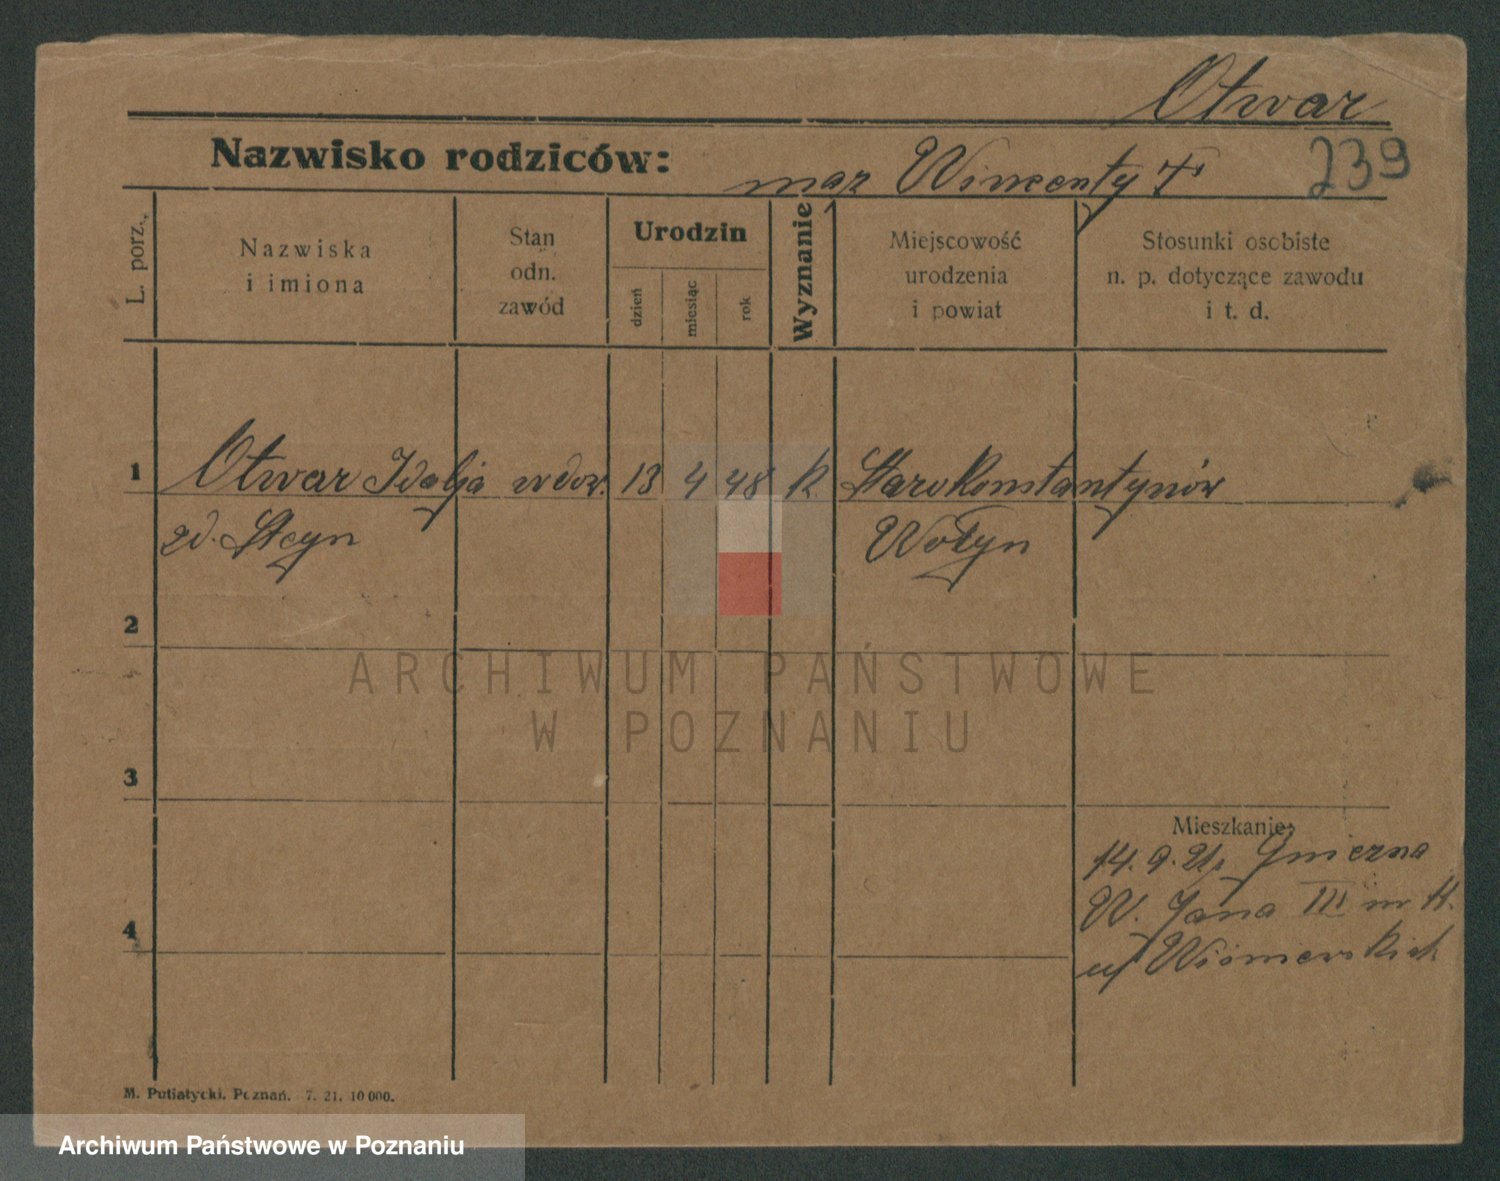 Otwar
Nazwisko rodziców:
mąż Wincenty †
239
L. porz.
Nazwiska
i imiona
Stan
odn.
zawód
Urodzin
dzień
miesiąc
rok
Wyznanie
Miejscowość
urodzenia
i powiat
Stosunki osobiste
n. p. dotyczące zawodu
i t. d.
1 Otwar Idalja wdow. 13 4 48 k. Starokonstantynów
zd. Steyn Wołyn
2
3
4
Mieszkanie:
14.9.21. Gniezna
W. Jana III nr 11.
u Wiśniewskich
M. Putiatycki. Poznań. 7. 21. 10 000.
ARCHIWUM PAŃSTWOWE
W POZNANIU
Archiwum Państwowe w Poznaniu